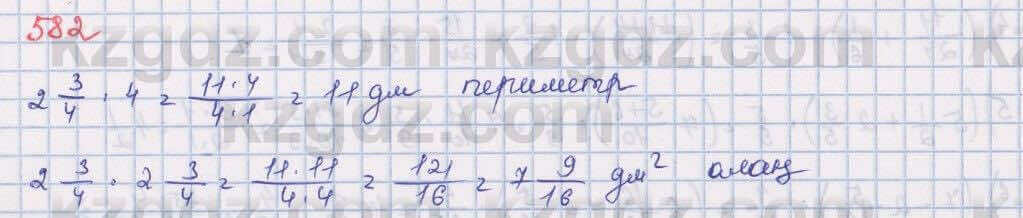 582
kzgdz.com
2 3/4 · 4 = 11·4/4·1 = 11 дм периметр
kzgdz.com
2 3/4 · 2 3/4 = 11·11/4·4 = 121/16 = 7 9/16 дм²